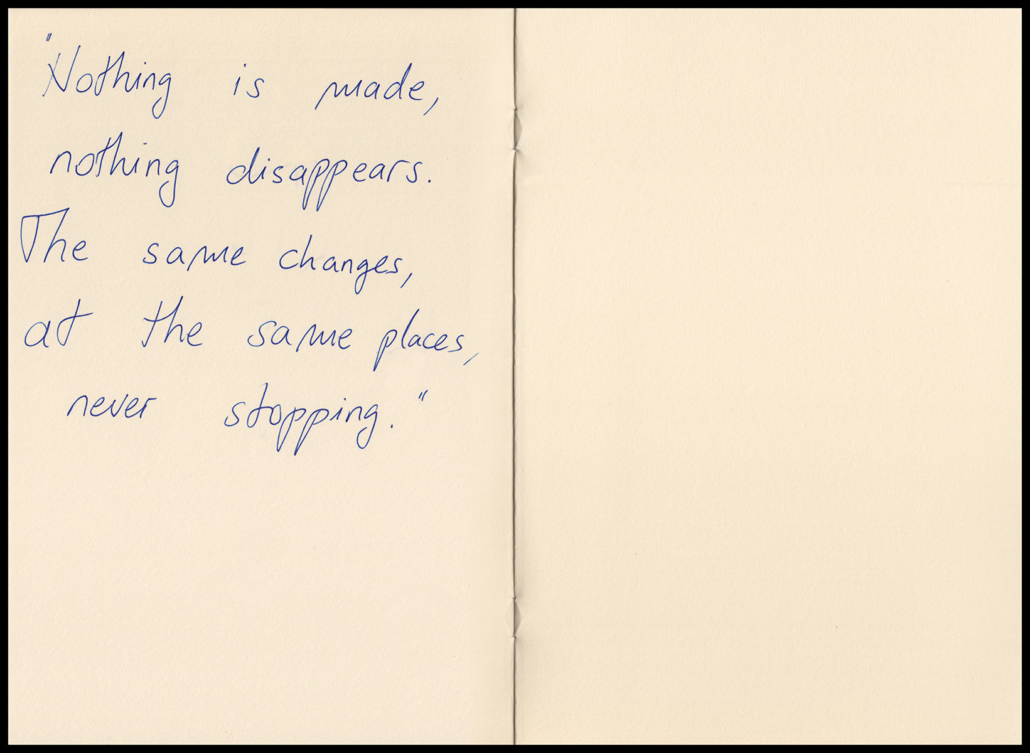 "Nothing is made,
nothing disappears.
The same changes,
at the same places,
never stopping."